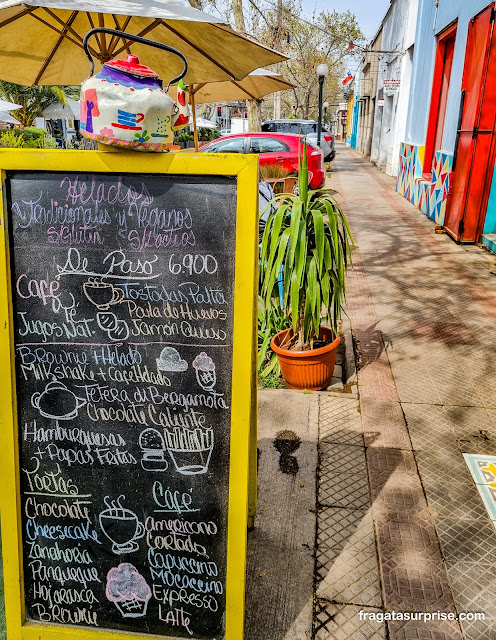 Helados
Tradicionales y Veganos
S/Glutin S/Lactios
De Paso 6.900
Café
Té
Jugos Nat.
Tostadas Palta
Paila de Huevos
Jamón Queso
Brownie + Helado
Milkshake + café Helado
Tetera de Bergamota
Chocolate Caliente
Hamburguesas
+ Papas Fritas
Tortas
Chocolate
Cheesicake
Zanahoria
Panqueque
Hojarasca
Brownie
Café
Americano
Cortado
Capuccino
Mocaccino
Expresso
Latte
fragatasurprise.com